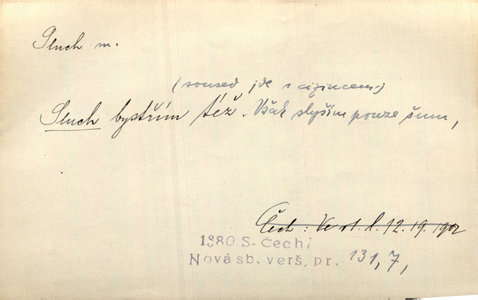 Sluch m.
(soused jde s cizincem)
Sluch bystřím též. Však slyším pouze šum,
Čech: Ve st. l. 12. 19. 1902
1880 S. Čech,
Nová sb. verš. pr. 131, 7,